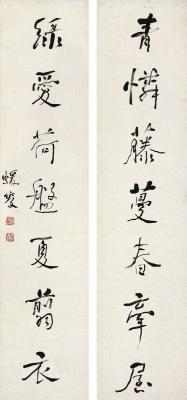 青憐藤蔓春牽屋
綠愛荷盤夏翦衣